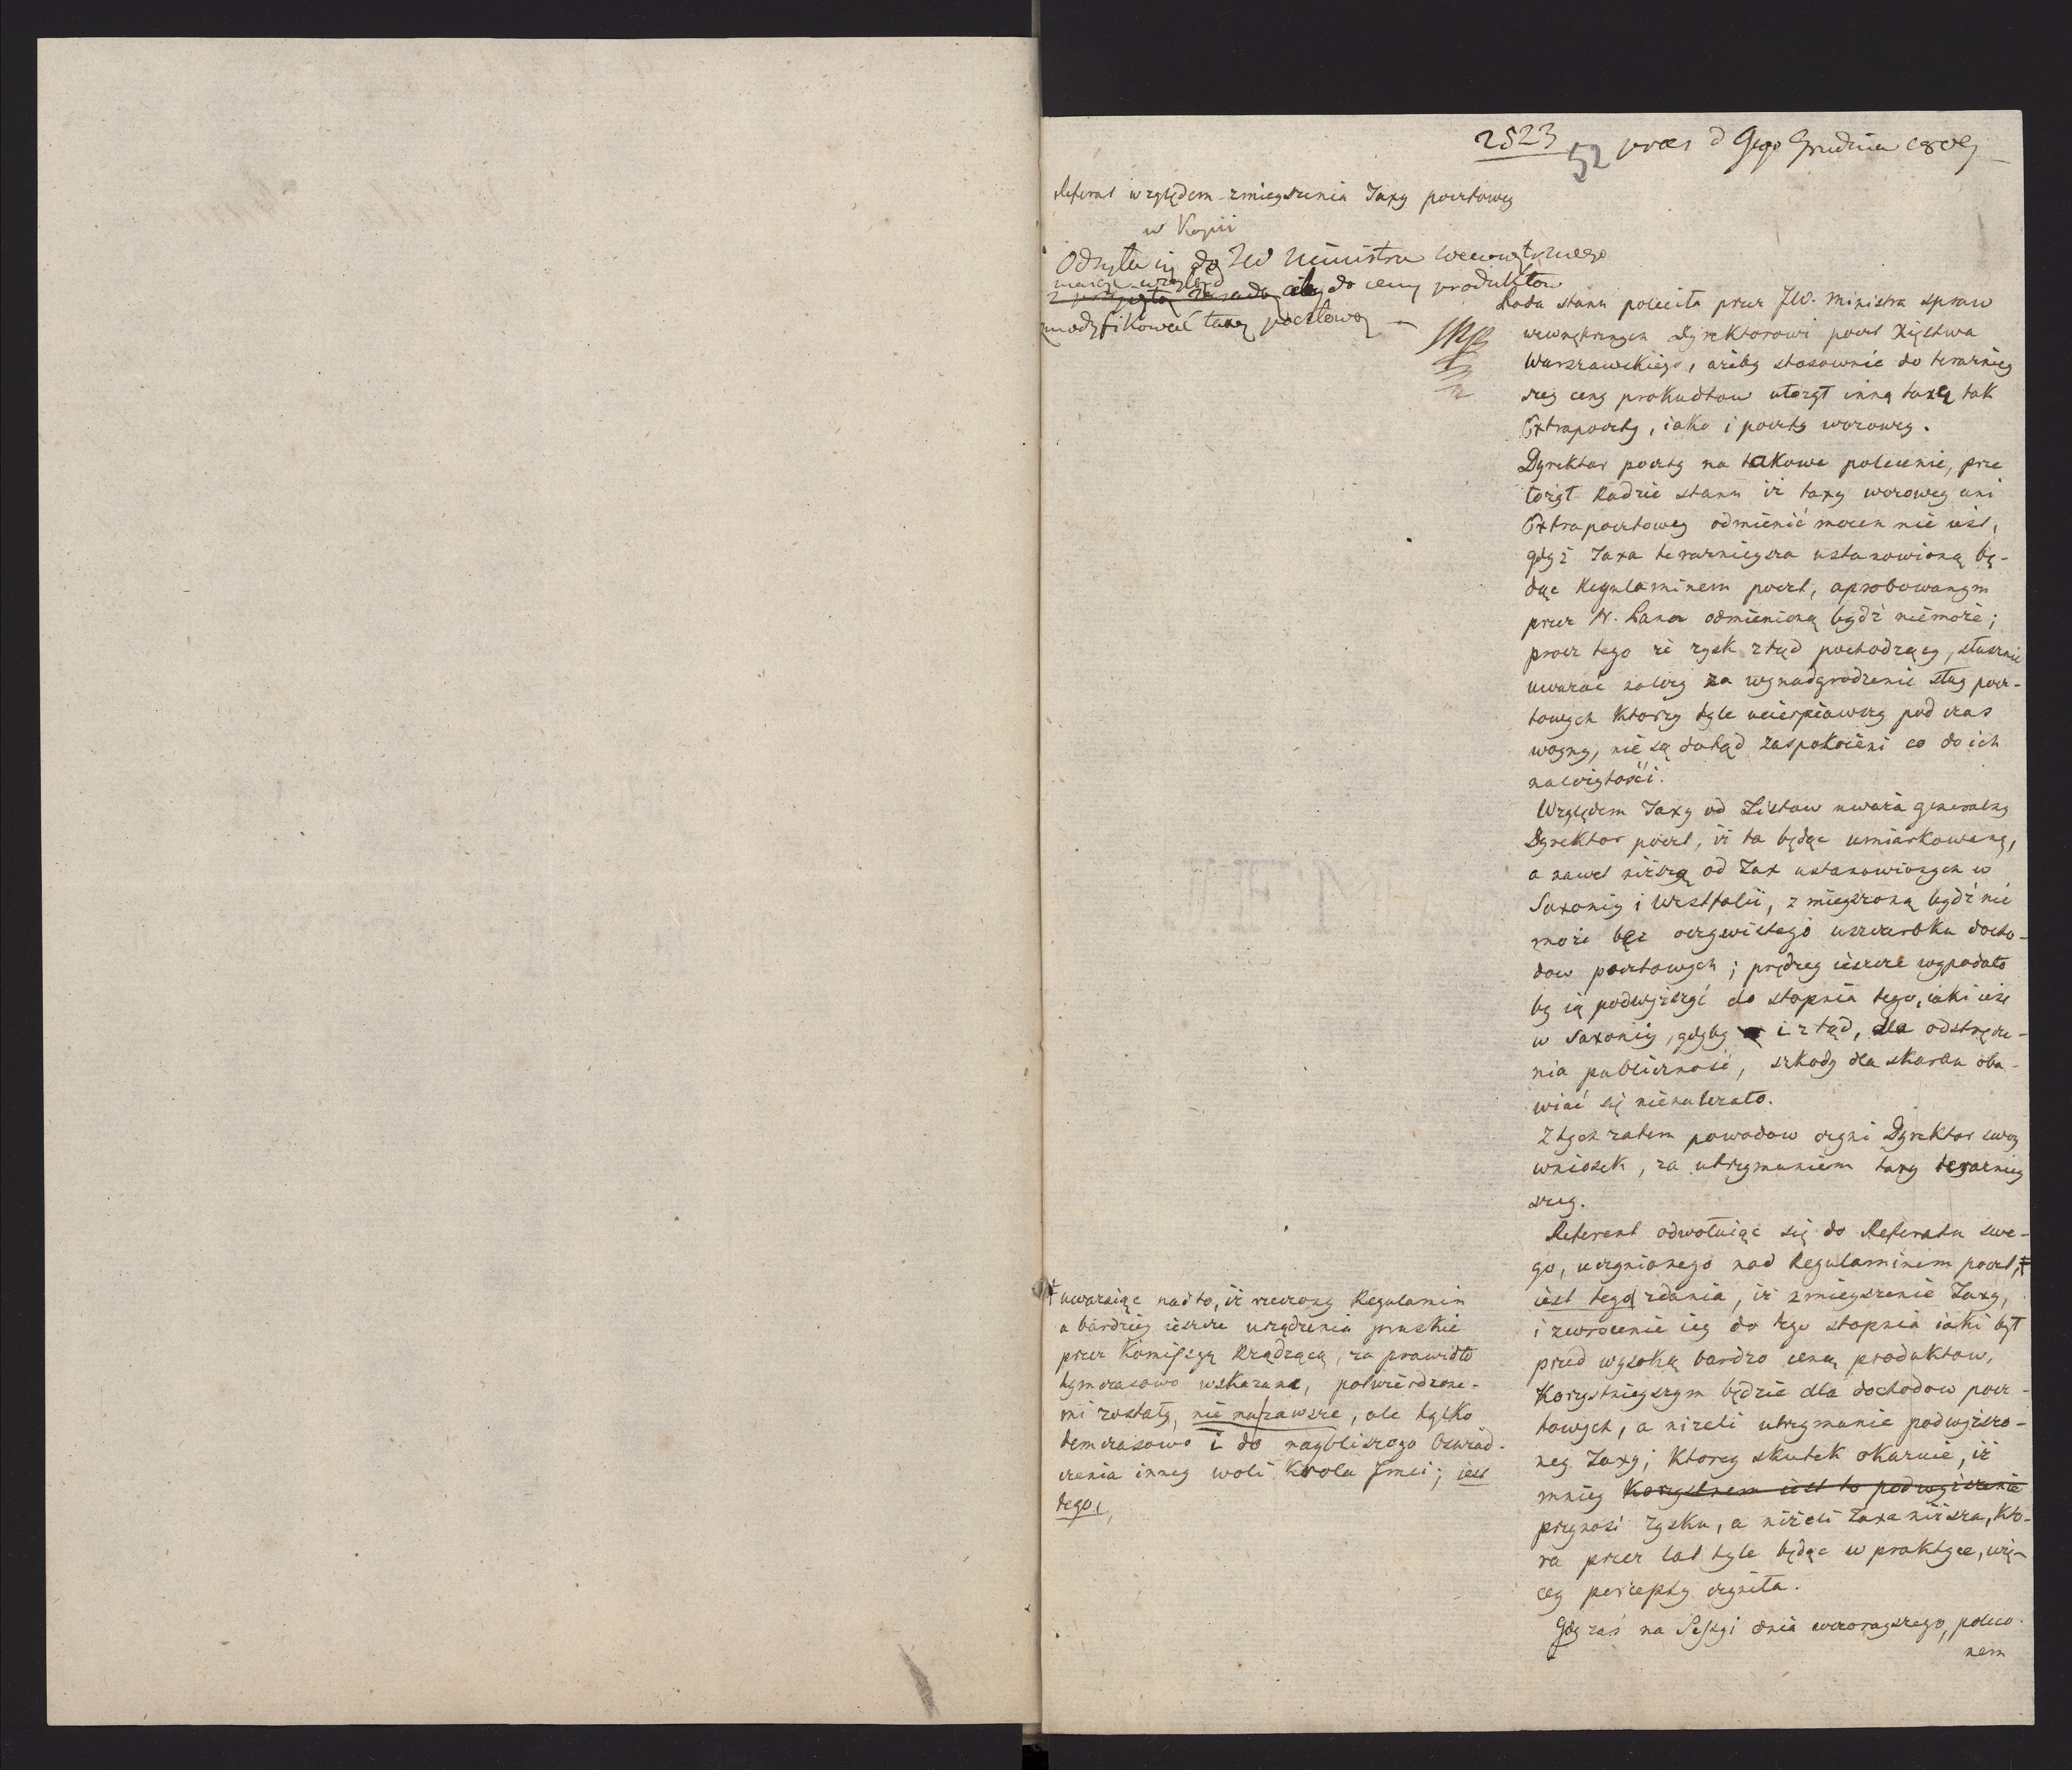 2523
52 praes d 9go Grudnia 1808
Referat względem zmieyszenia Taxy pocztowey
w Kopii
Odsyła się do JW Ministra wewnętrznego
maiąc wzgląd
aby do ceny produktow
zmodyfikował taxę pocztową —
Rada stanu poleciła przez JW. Ministra spraw
wewnętrznych Dyrektorowi poczt Xięstwa
Warszawskiego, ażeby stosownie do teraźniey
szey ceny produktow ułożył inną taxę tak
Extrapoczty, iako i poczty wozowey.
Dyrektor poczty na takowe polecenie, prze
łożył Radzie stanu iż taxy wozowey ani
Extrapocztowey odmienić mocen nie iest,
gdyż Taxa teraznieysza ustanowioną bę-
dąc Regulaminem poczt, aprobowanym
przez N. Pana odmienioną bydź niemoże;
procz tego że zysk ztąd pochodzący, słusznie
uważać należy za wynadgrodzenie sług pocz-
towych ktorzy tyle ucierpiawszy pod czas
woyny, nie są dotąd zaspokoieni co do ich
należytości.
Względem Taxy od Listow uważa generalny
Dyrektor poczt, iż ta będąc umiarkowaną,
a nawet niższą od Tax ustanowionych w
Saxonij i Westfalii, zmieyszoną bydź nie
może bez oczywistego uszczerbku docho-
dow pocztowych; prędzey ieszcze wypadało
by ią podwyższyć do stopnia tego, iaki iest
w Saxonij, gdyby i ztąd, dla odstręcze-
nia publiczność, szkody dla skarbu oba-
wiać się nienależało.
Z tych zatem powodow czyni Dyrektor swoy
wniosek, za utrzymaniem taxy teraźniey
szey.
Referent odwołuiąc się do Referatu swe-
go, uczynionego nad Regulaminem poczt, ǂ
iest tego zdania, iż zmieyszenie Taxy,
i zwrocenie iey do tego stopnia iaki był
przed wysoką bardzo ceną produktow,
Korzystnieyszym będzie dla dochodow pocz-
towych, a niżeli utrzymanie podwyższo-
ney Taxy; ktorey skutek okazuie, iż
mniey korzystnem iest to podwyższenie
przynosi zysku, a niżeli Taxa niższa, kto-
ra przez lat tyle będąc w praktyce, wię-
cey percepty czyniła.
Gdy zaś na Sessyi dnia wczorayszego, poleco-
nem
ǂ uważaiąc nadto, iż rzeczony Regulamin
a bardziey ieszcze urządzenia pruskie
przez Komissyą Rządzącą, za prawidło
tymczasowo wskazane, potwierdzone-
mi zostały, nie na zawsze, ale tylko
temczasowo i do nayblizszego Oświad-
czenia inney woli Krola Jmci; iest
tego,